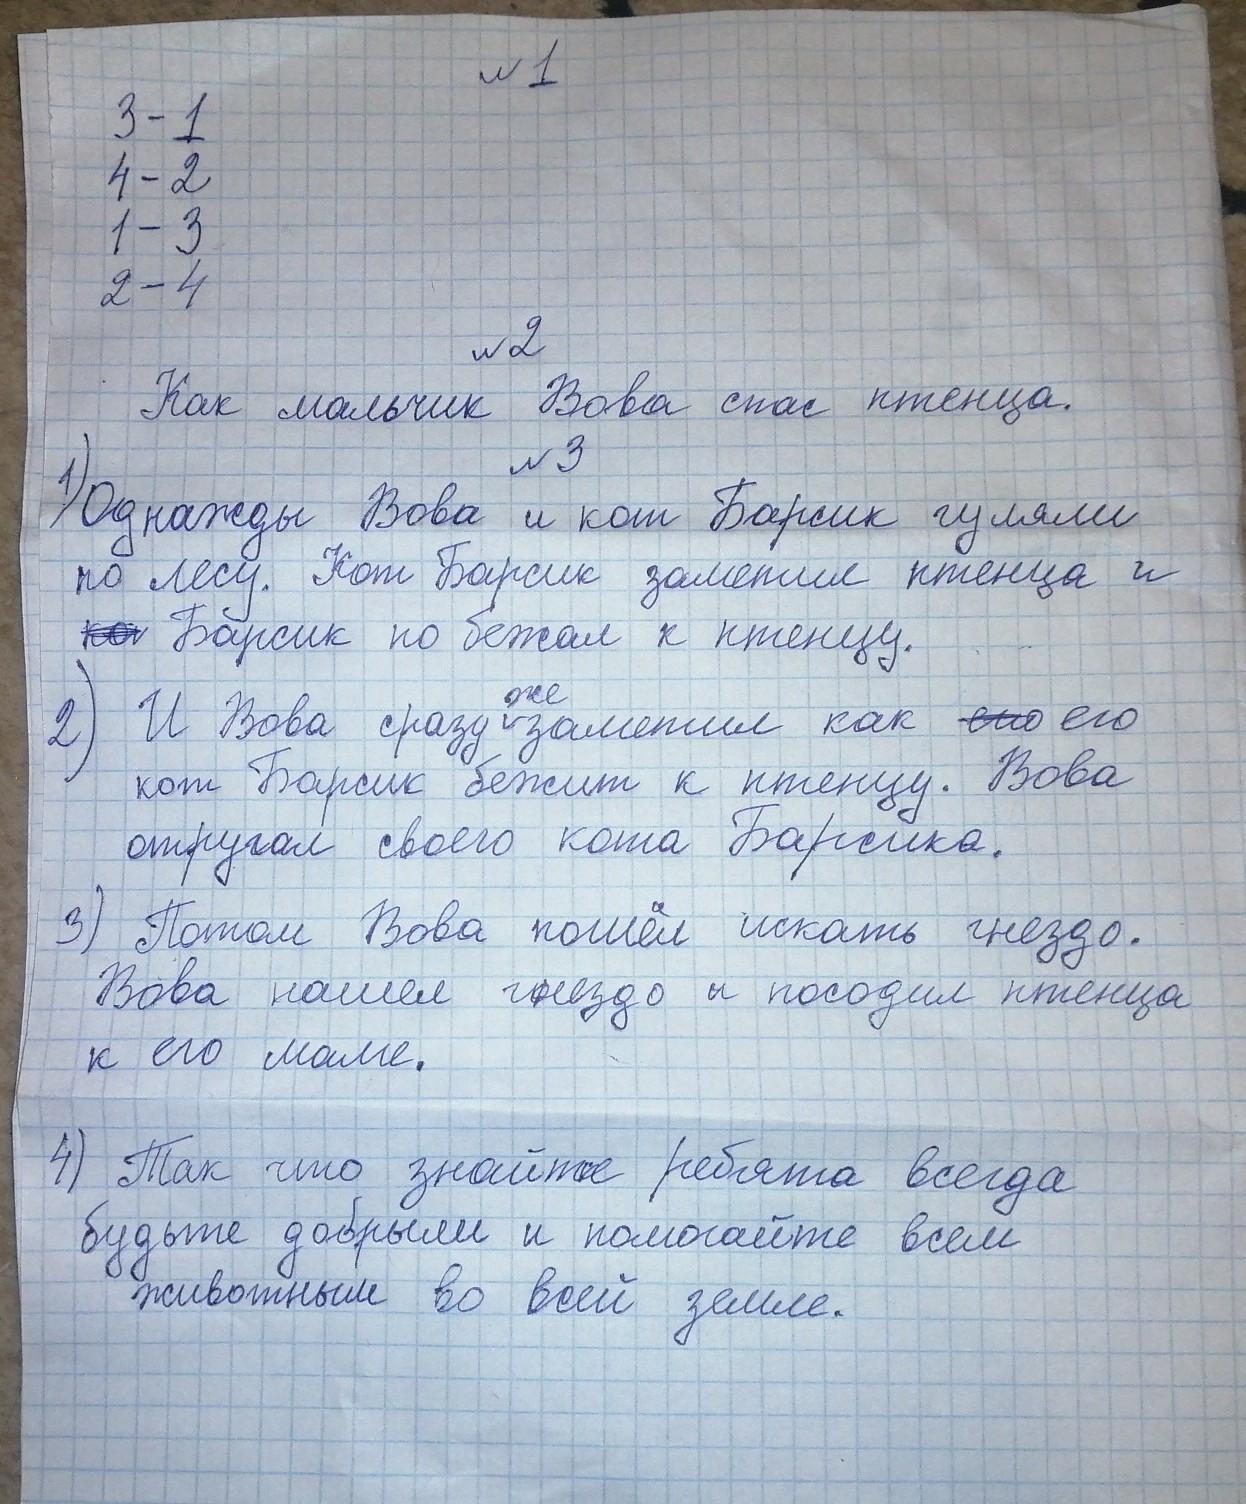 №1
3-1
4-2
1-3
2-4
№2
Как мальчик Вова спас птенца.
№3
1) Однажды Вова и кот Барсик гуляли
по лесу. Кот Барсик заметил птенца и
Барсик по бежал к птенцу.
2) И Вова сразу же заметил как его
кот Барсик бежит к птенцу. Вова
отругал своего кота Барсика.
3) Потом Вова пошёл искать гнездо.
Вова нашел гнездо и посодил птенца
к его маме.
4) Так что знайте ребята всегда
будьте добрыми и помогайте всем
животным во всей земле.